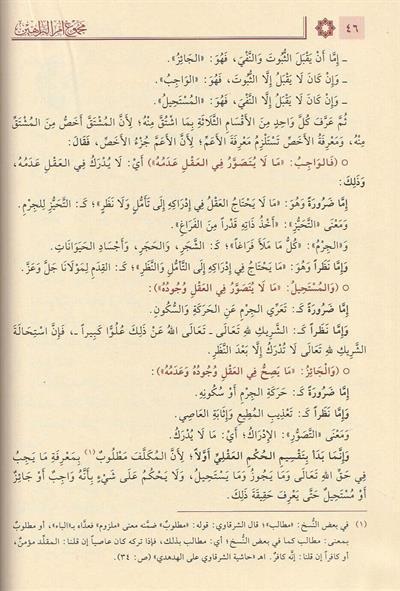 ٤٦
مجموع أم البراهين
ـ إِمَّا أَنْ يَقْبَلَ الثُّبُوتَ وَالنَّفْيَ، فَهُوَ: «الجَائِزُ».
ـ وَإِنْ كَانَ لَا يَقْبَلُ إِلَّا الثُّبُوتَ، فَهُوَ: «الوَاجِبُ».
ـ وَإِنْ كَانَ لَا يَقْبَلُ إِلَّا النَّفْيَ، فَهُوَ: «المُسْتَحِيلُ».
ثُمَّ عَرَّفَ كُلَّ وَاحِدٍ مِنَ الأَقْسَامِ الثَّلَاثَةِ بِمَا اشْتُقَّ مِنْهُ؛ لِأَنَّ المُشْتَقَّ أَخَصُّ مِنَ المُشْتَقِّ
مِنْهُ، وَمَعْرِفَةُ الأَخَصِّ تَسْتَلْزِمُ مَعْرِفَةَ الأَعَمِّ؛ لِأَنَّ الأَعَمَّ جُزْءُ الأَخَصِّ، فَقَالَ:
○ (فَالوَاجِبُ: «مَا لَا يُتَصَوَّرُ فِي العَقْلِ عَدَمُهُ») أَيْ: لَا يُدْرَكُ فِي العَقْلِ عَدَمُهُ،
وَذَلِكَ:
إِمَّا ضَرُورَةً وَهُوَ: «مَا لَا يَحْتَاجُ العَقْلُ فِي إِدْرَاكِهِ إِلَى تَأَمُّلٍ وَلَا نَظَرٍ»؛ كَـ: التَّحَيُّزِ لِلْجِرْمِ.
وَمَعْنَى «التَّحَيُّزِ»: «أَخْذُ ذَاتِهِ قَدْراً مِنَ الفَرَاغِ».
وَ«الجِرْمُ»: «كُلُّ مَا مَلَأَ فَرَاغاً»؛ كَـ: الشَّجَرِ، وَالحَجَرِ، وَأَجْسَادِ الحَيَوَانَاتِ.
وَإِمَّا نَظَراً وَهُوَ: «مَا يَحْتَاجُ فِي إِدْرَاكِهِ إِلَى التَّأَمُّلِ وَالنَّظَرِ»؛ كَـ: القِدَمِ لِمَوْلَانَا جَلَّ وَعَزَّ.
○ (وَالمُسْتَحِيلُ: «مَا لَا يُتَصَوَّرُ فِي العَقْلِ وُجُودُهُ»):
إِمَّا ضَرُورَةً كَـ: تَعَرِّي الجِرْمِ عَنِ الحَرَكَةِ وَالسُّكُونِ.
وَإِمَّا نَظَراً كَـ: الشَّرِيكِ لِلهِ تَعَالَى ـ تَعَالَى اللهُ عَنْ ذَلِكَ عُلُوًّا كَبِيراً ـ، فَإِنَّ اسْتِحَالَةَ
الشَّرِيكِ لِلهِ تَعَالَى لَا تُدْرَكُ إِلَّا بَعْدَ النَّظَرِ.
○ (وَالجَائِزُ: «مَا يَصِحُّ فِي العَقْلِ وُجُودُهُ وَعَدَمُهُ»):
إِمَّا ضَرُورَةً كَـ: حَرَكَةِ الجِرْمِ أَوْ سُكُونِهِ.
وَإِمَّا نَظَراً كَـ: تَعْذِيبِ المُطِيعِ وَإِثَابَةِ العَاصِي.
وَمَعْنَى «التَّصَوُّرِ»: الإِدْرَاكُ؛ أَيْ: مَا لَا يُدْرَكُ.
وَإِنَّمَا بَدَأَ بِتَقْسِيمِ الحُكْمِ العَقْلِيِّ أَوَّلاً؛ لِأَنَّ المُكَلَّفَ مَطْلُوبٌ(١) بِمَعْرِفَةِ مَا يَجِبُ
فِي حَقِّ اللهِ تَعَالَى وَمَا يَجُوزُ وَمَا يَسْتَحِيلُ، وَلَا يَحْكُمُ عَلَى شَيْءٍ بِأَنَّهُ وَاجِبٌ أَوْ جَائِزٌ
أَوْ مُسْتَحِيلٌ حَتَّى يَعْرِفَ حَقِيقَةَ ذَلِكَ.
(١) في بعض النُّسخ: «مطالب»؛ قال الشرقاوي: قوله: «مطلوبٌ» ضمَّنه معنى «ملزوم» فعدَّاه بـ«الباء»، أو مطلوبٌ
بمعنى: مطالب كما في بعض النُّسخ؛ أي: مطالب بذلك، فإذا تركه كان عاصياً إن قلنا: المقلِّد مؤمنٌ،
أو كافراً إن قلنا: إنَّه كافرٌ. اهـ «حاشية الشرقاوي على الهدهدي» (ص: ٣٤).